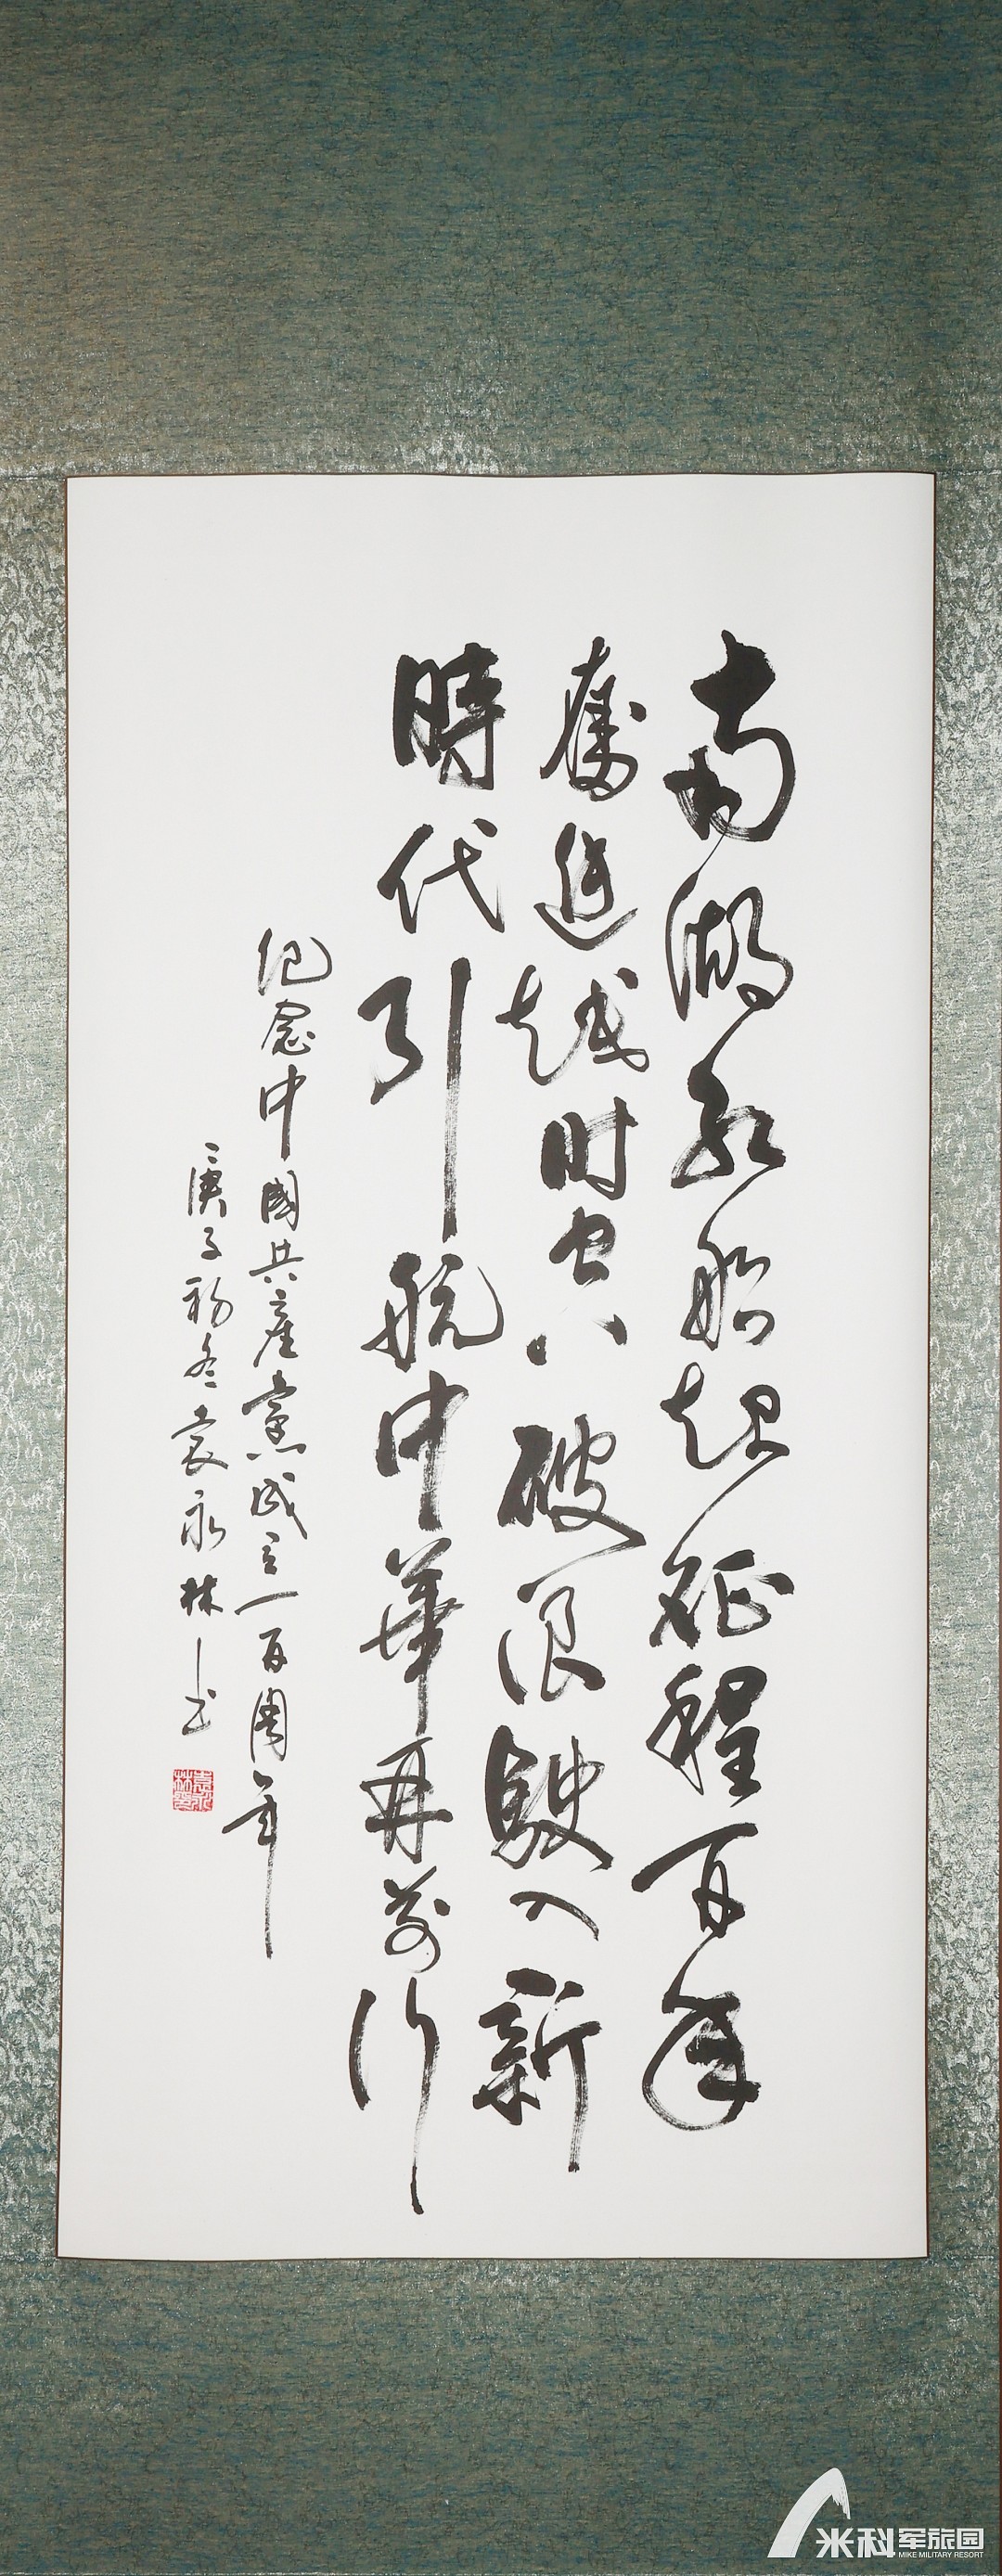 南湖红船起征程百年
奮进越时空破浪駛入新
時代引航中華再前行
纪念中國共産黨成立一百周年
庚子初冬袁永林书
袁永林印
米科军旅园
MIKE MILITARY RESORT